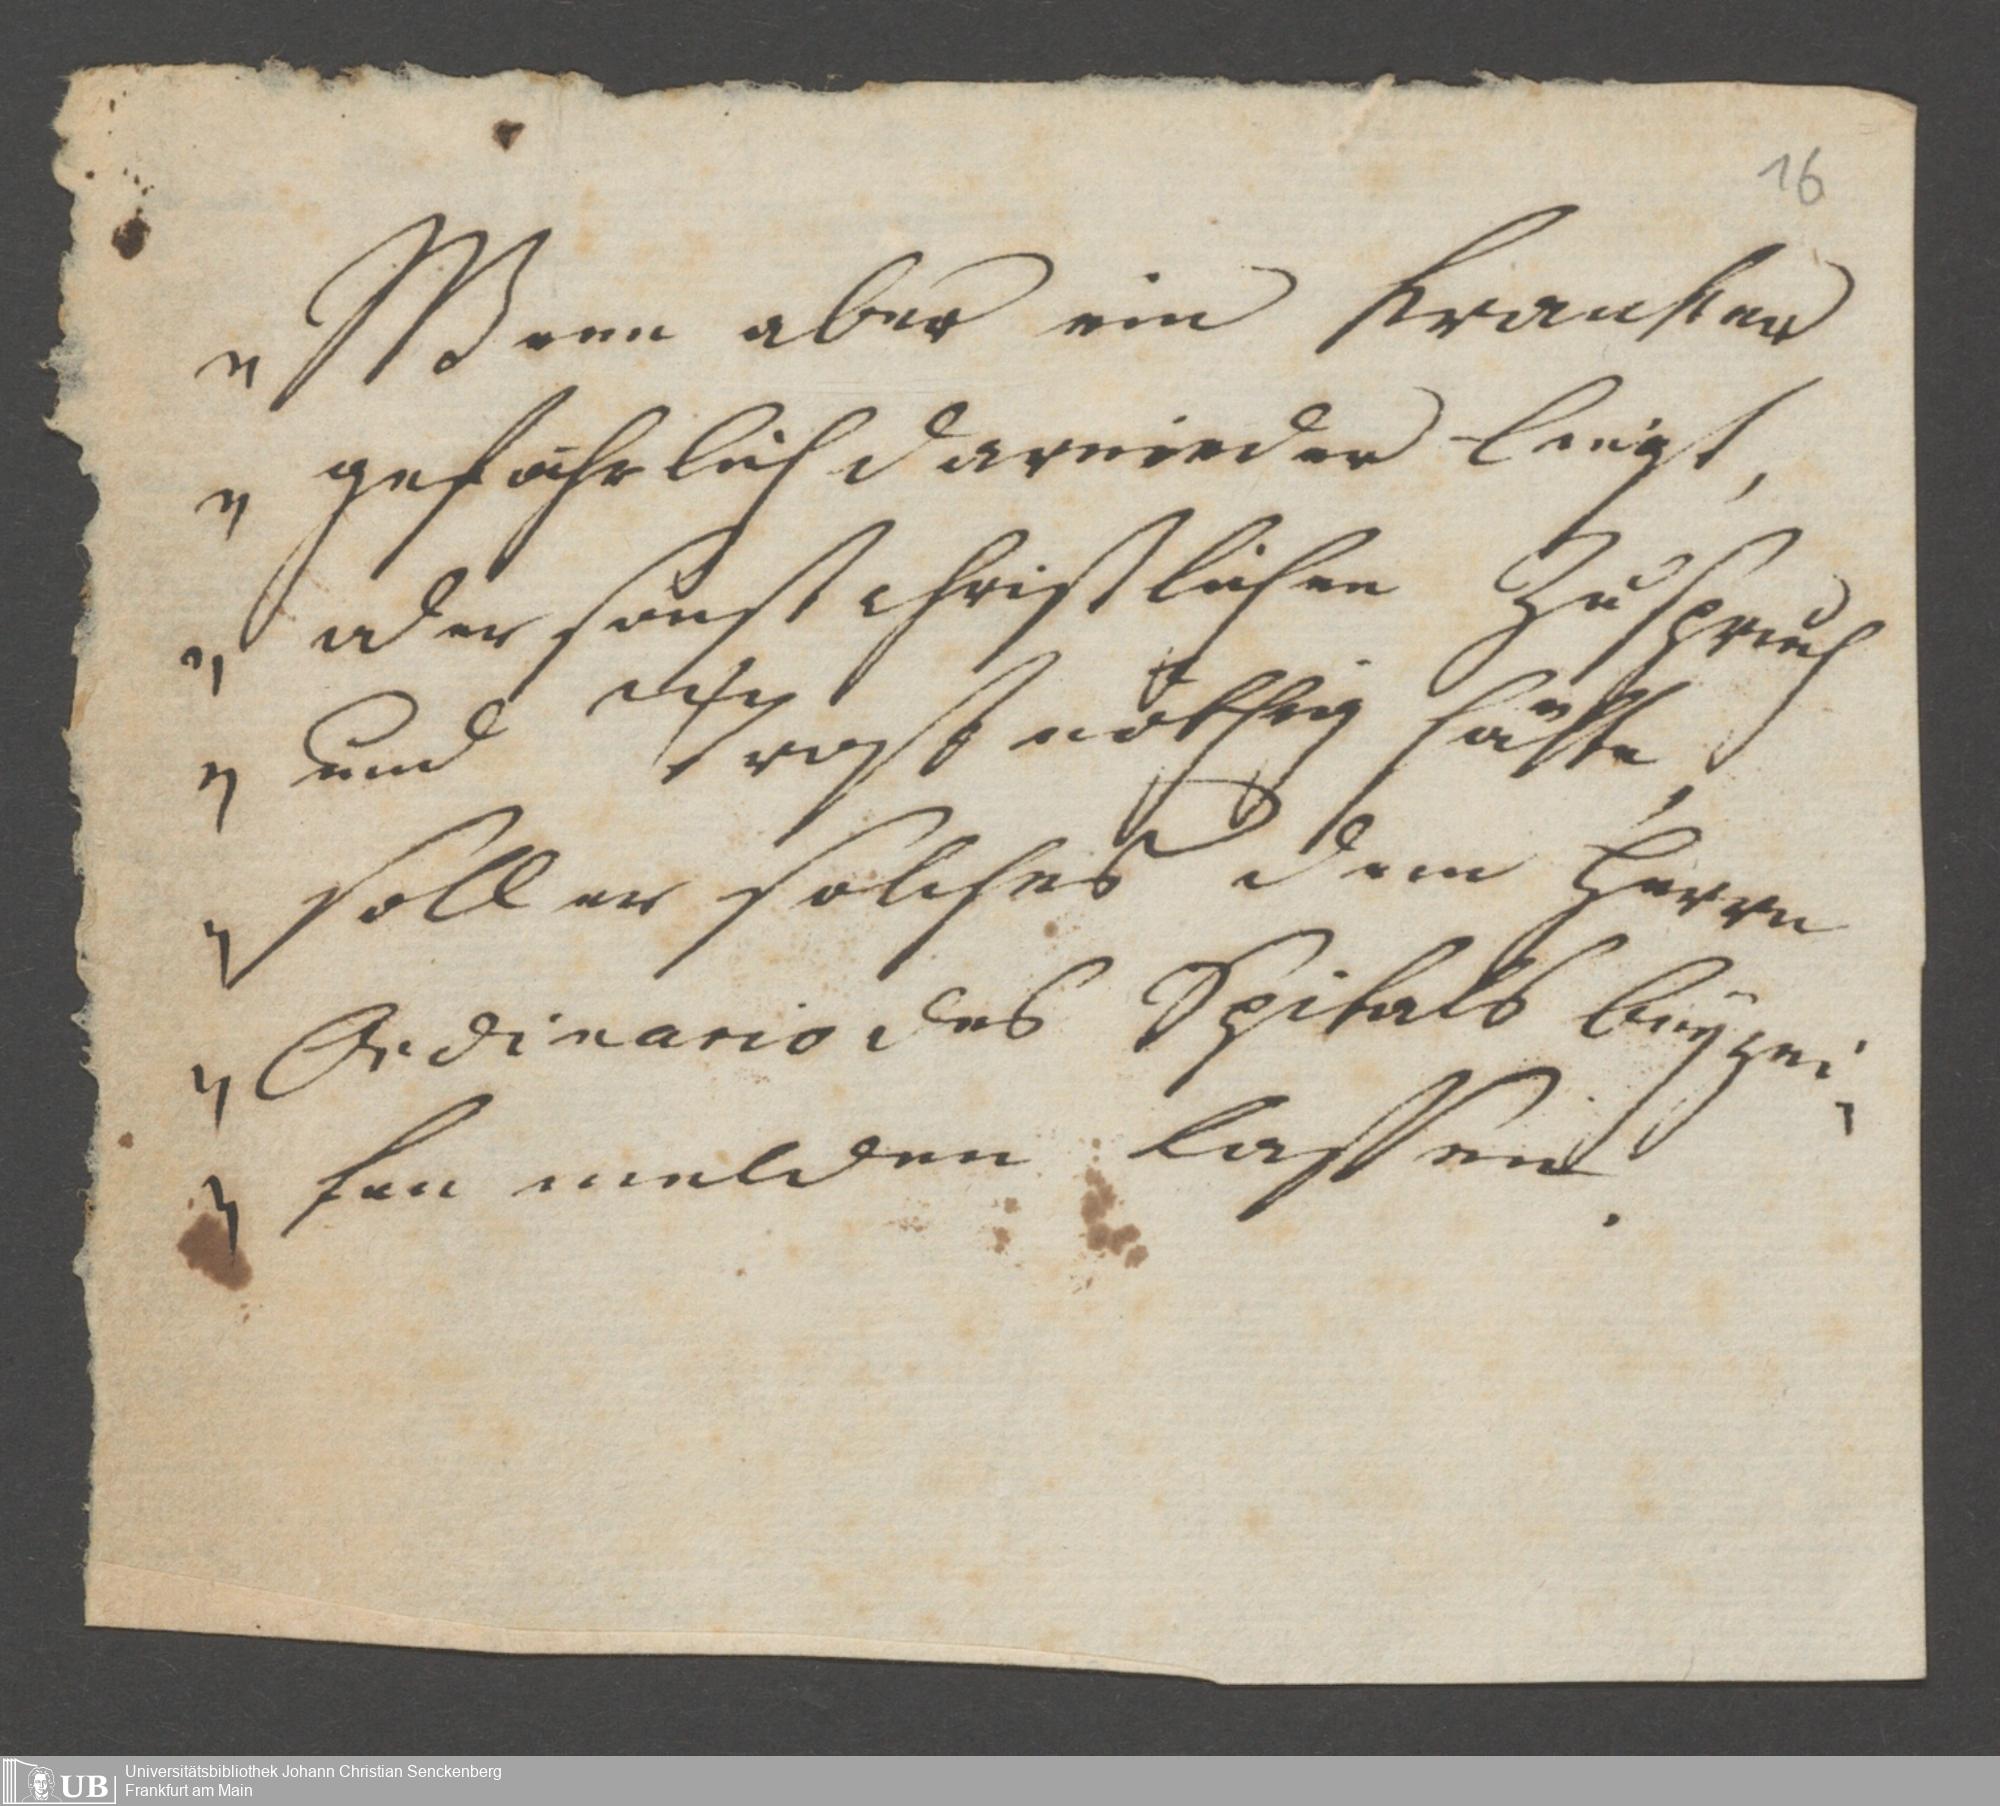 16
" Wenn aber ein Kranker
" gefährlich darnieder liegt,
" oder sonst christlichen Zuspruch
" und Trost nöthig hätte,
" soll er solches dem Herrn
" Ordinario des Spitals beyzei-
" ten melden lassen.
UB
Universitätsbibliothek Johann Christian Senckenberg
Frankfurt am Main